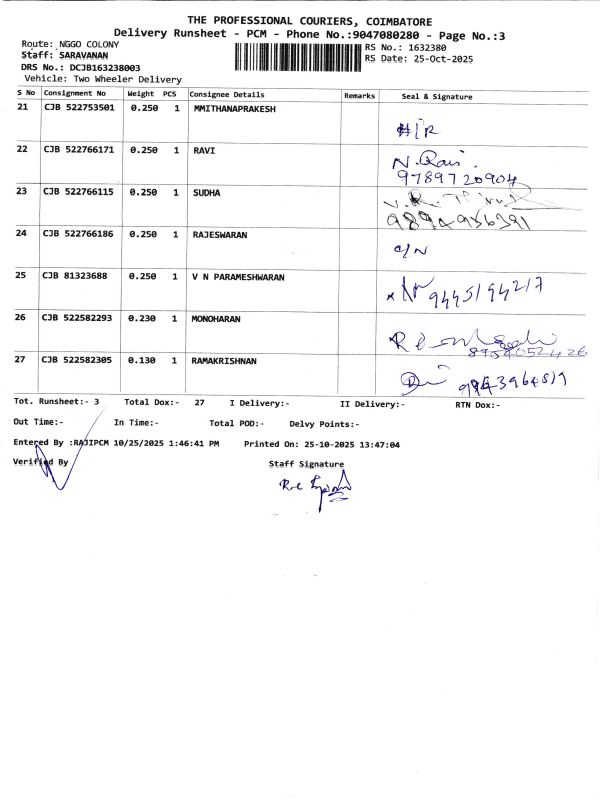 THE PROFESSIONAL COURIERS, COIMBATORE
Delivery Runsheet - PCM - Phone No.:9047080280 - Page No.:3
Route: NGGO COLONY
RS No.: 1632380
Staff: SARAVANAN
RS Date: 25-Oct-2025
DRS No.: DCJB163238003
Vehicle: Two Wheeler Delivery
S No Consignment No Weight PCS Consignee Details Remarks Seal & Signature
21 CJB 522753501 0.250 1 MMITHANAPRAKESH
22 CJB 522766171 0.250 1 RAVI
N. Ravi.
9789720904
23 CJB 522766115 0.250 1 SUDHA
9894936391
24 CJB 522766186 0.250 1 RAJESWARAN
25 CJB 81323688 0.250 1 V N PARAMESHWARAN
9445194217
26 CJB 522582293 0.230 1 MONOHARAN
27 CJB 522582305 0.130 1 RAMAKRISHNAN
Tot. Runsheet:- 3 Total Dox:- 27 I Delivery:- II Delivery:- RTN Dox:-
Out Time:- In Time:- Total POD:- Delvy Points:-
Entered By :RAJIPCM 10/25/2025 1:46:41 PM Printed On: 25-10-2025 13:47:04
Verified By Staff Signature